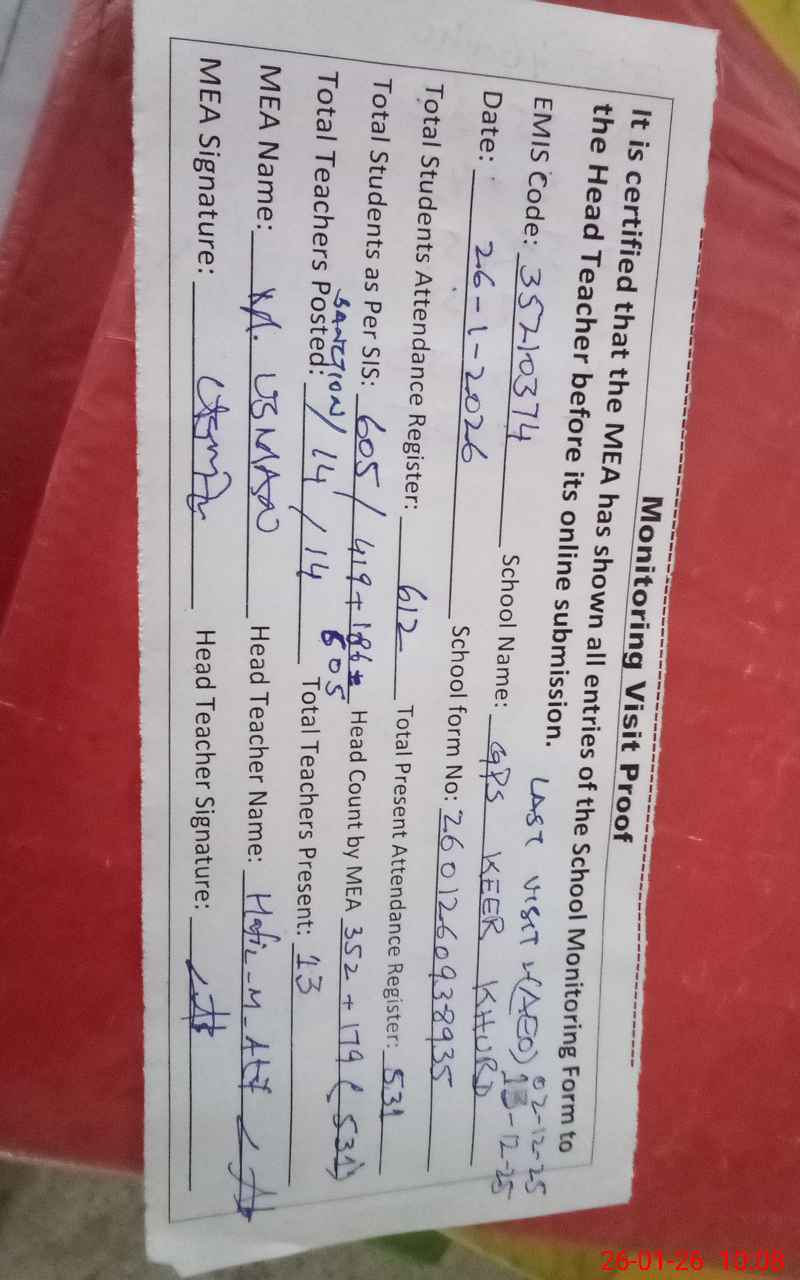 Monitoring Visit Proof
It is certified that the MEA has shown all entries of the School Monitoring Form to
the Head Teacher before its online submission. LAST VISIT (AEO) 02-12-25
13-12-25
EMIS Code: 35210374 School Name: GPS KEER KHURD
Date: 26-1-2026 School form No: 2601260938935
Total Students Attendance Register: 612 Total Present Attendance Register: 531
Total Students as Per SIS: 605 / 419+186= 605 Head Count by MEA 352 + 179 (531)
SANCTION
Total Teachers Posted: / 14 / 14 Total Teachers Present: 13
MEA Name: M. USMAN Head Teacher Name: Hafiz-M-
MEA Signature: Usman Head Teacher Signature:
26-01-26 10:08